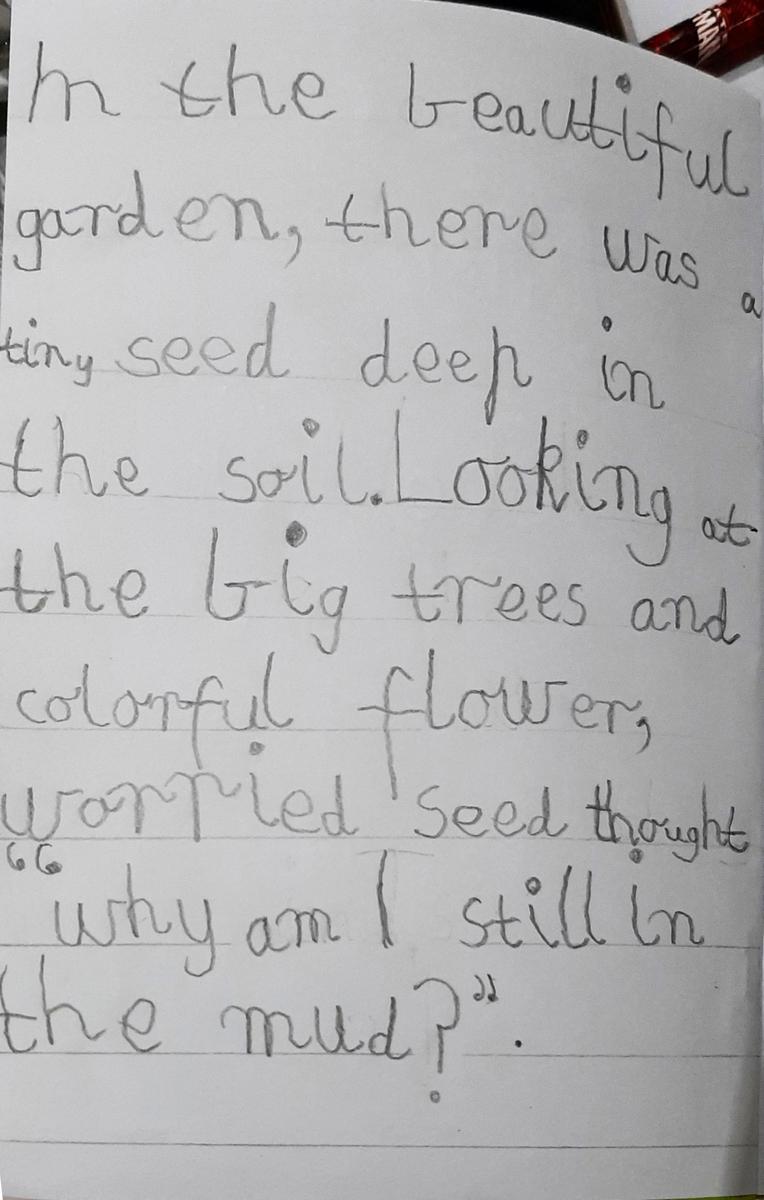 In the beautiful
garden, there was a
tiny seed deep in
the soil. Looking at
the big trees and
colorful flower,
worried seed thought
“why am I still in
the mud?”.